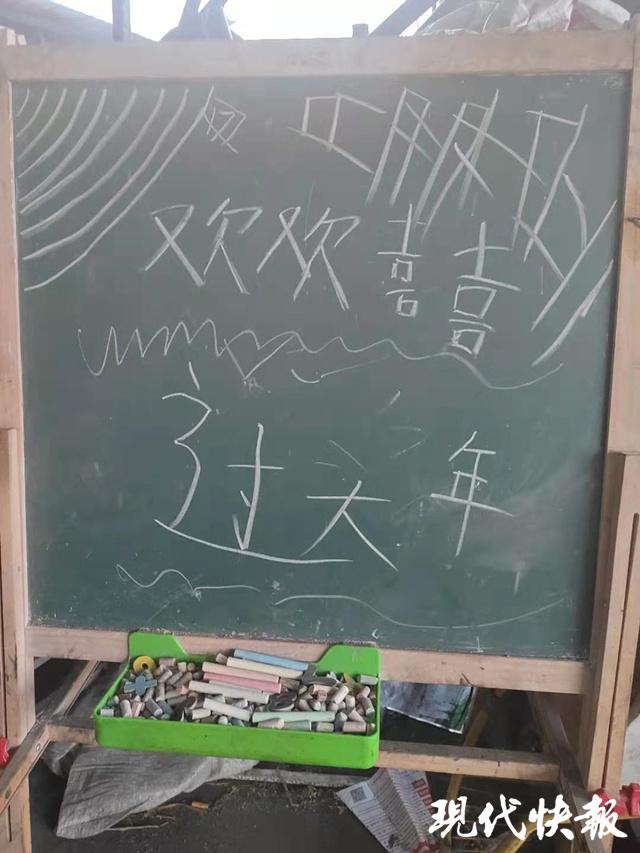 欢欢喜喜
过大年
现代快報